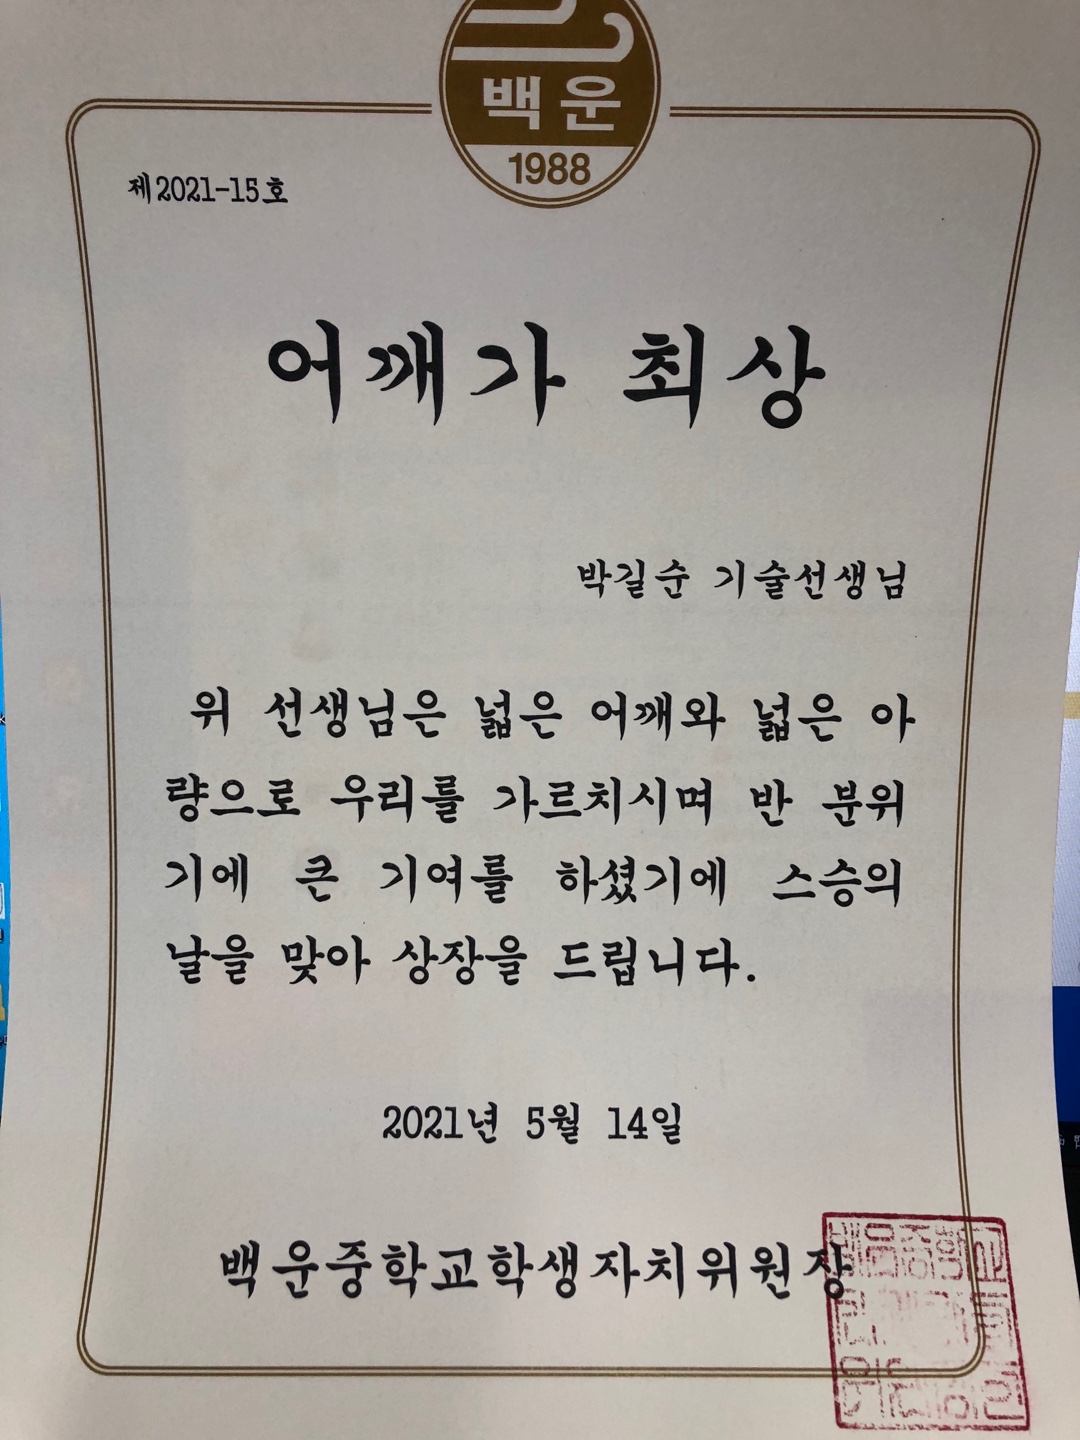 백운
1988
제2021-15호
어깨가 최상
박길순 기술선생님
위 선생님은 넓은 어깨와 넓은 아
량으로 우리를 가르치시며 반 분위
기에 큰 기여를 하셨기에 스승의
날을 맞아 상장을 드립니다.
2021년 5월 14일
백운중학교학생자치위원장